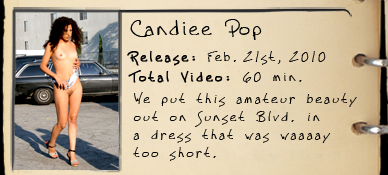 Candiee Pop
Release: Feb. 21st, 2010
Total Video: 60 min.
We put this amateur beauty
out on Sunset Blvd. in
a dress that was waaaay
too short.